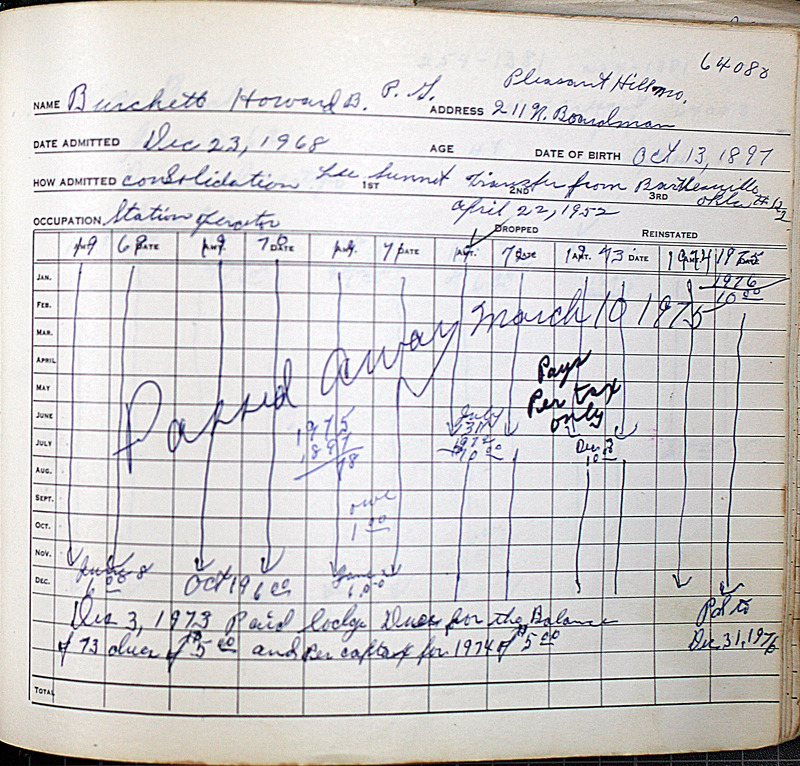 64080
Pleasant Hill mo.
NAME Burchett Howard B. P. G. ADDRESS 211 N. Boardman
DATE ADMITTED Dec 23, 1968 AGE DATE OF BIRTH Oct 13, 1897
HOW ADMITTED consolidation Lee Summit 1ST Transfer from 2ND Bartlesville 3RD Okla #
April 22, 1952
OCCUPATION Station Operator
DROPPED REINSTATED
AMT. 69 DATE AMT. 70 DATE AMT. 71 DATE AMT. 72 DATE AMT. 1973 DATE 1974 1975 DATE
JAN. 1976
FEB. 10 00
Passed away March 10 1975
MAR.
APRIL
MAY Pays
Per tax
JUNE only
1975 July
31st
JULY 1897 1972 Dec 3
78 10 00 10
AUG.
SEPT. owe
OCT. 1 00
NOV.
DEC. 6 00 Oct 19 6 00 June 6 00
Dec 3, 1973 Paid lodge Dues for the Balance Pd to
of 73 dues of $5 00 and Per cap tax for 1974 of $5 00 Dec 31, 1976
TOTAL